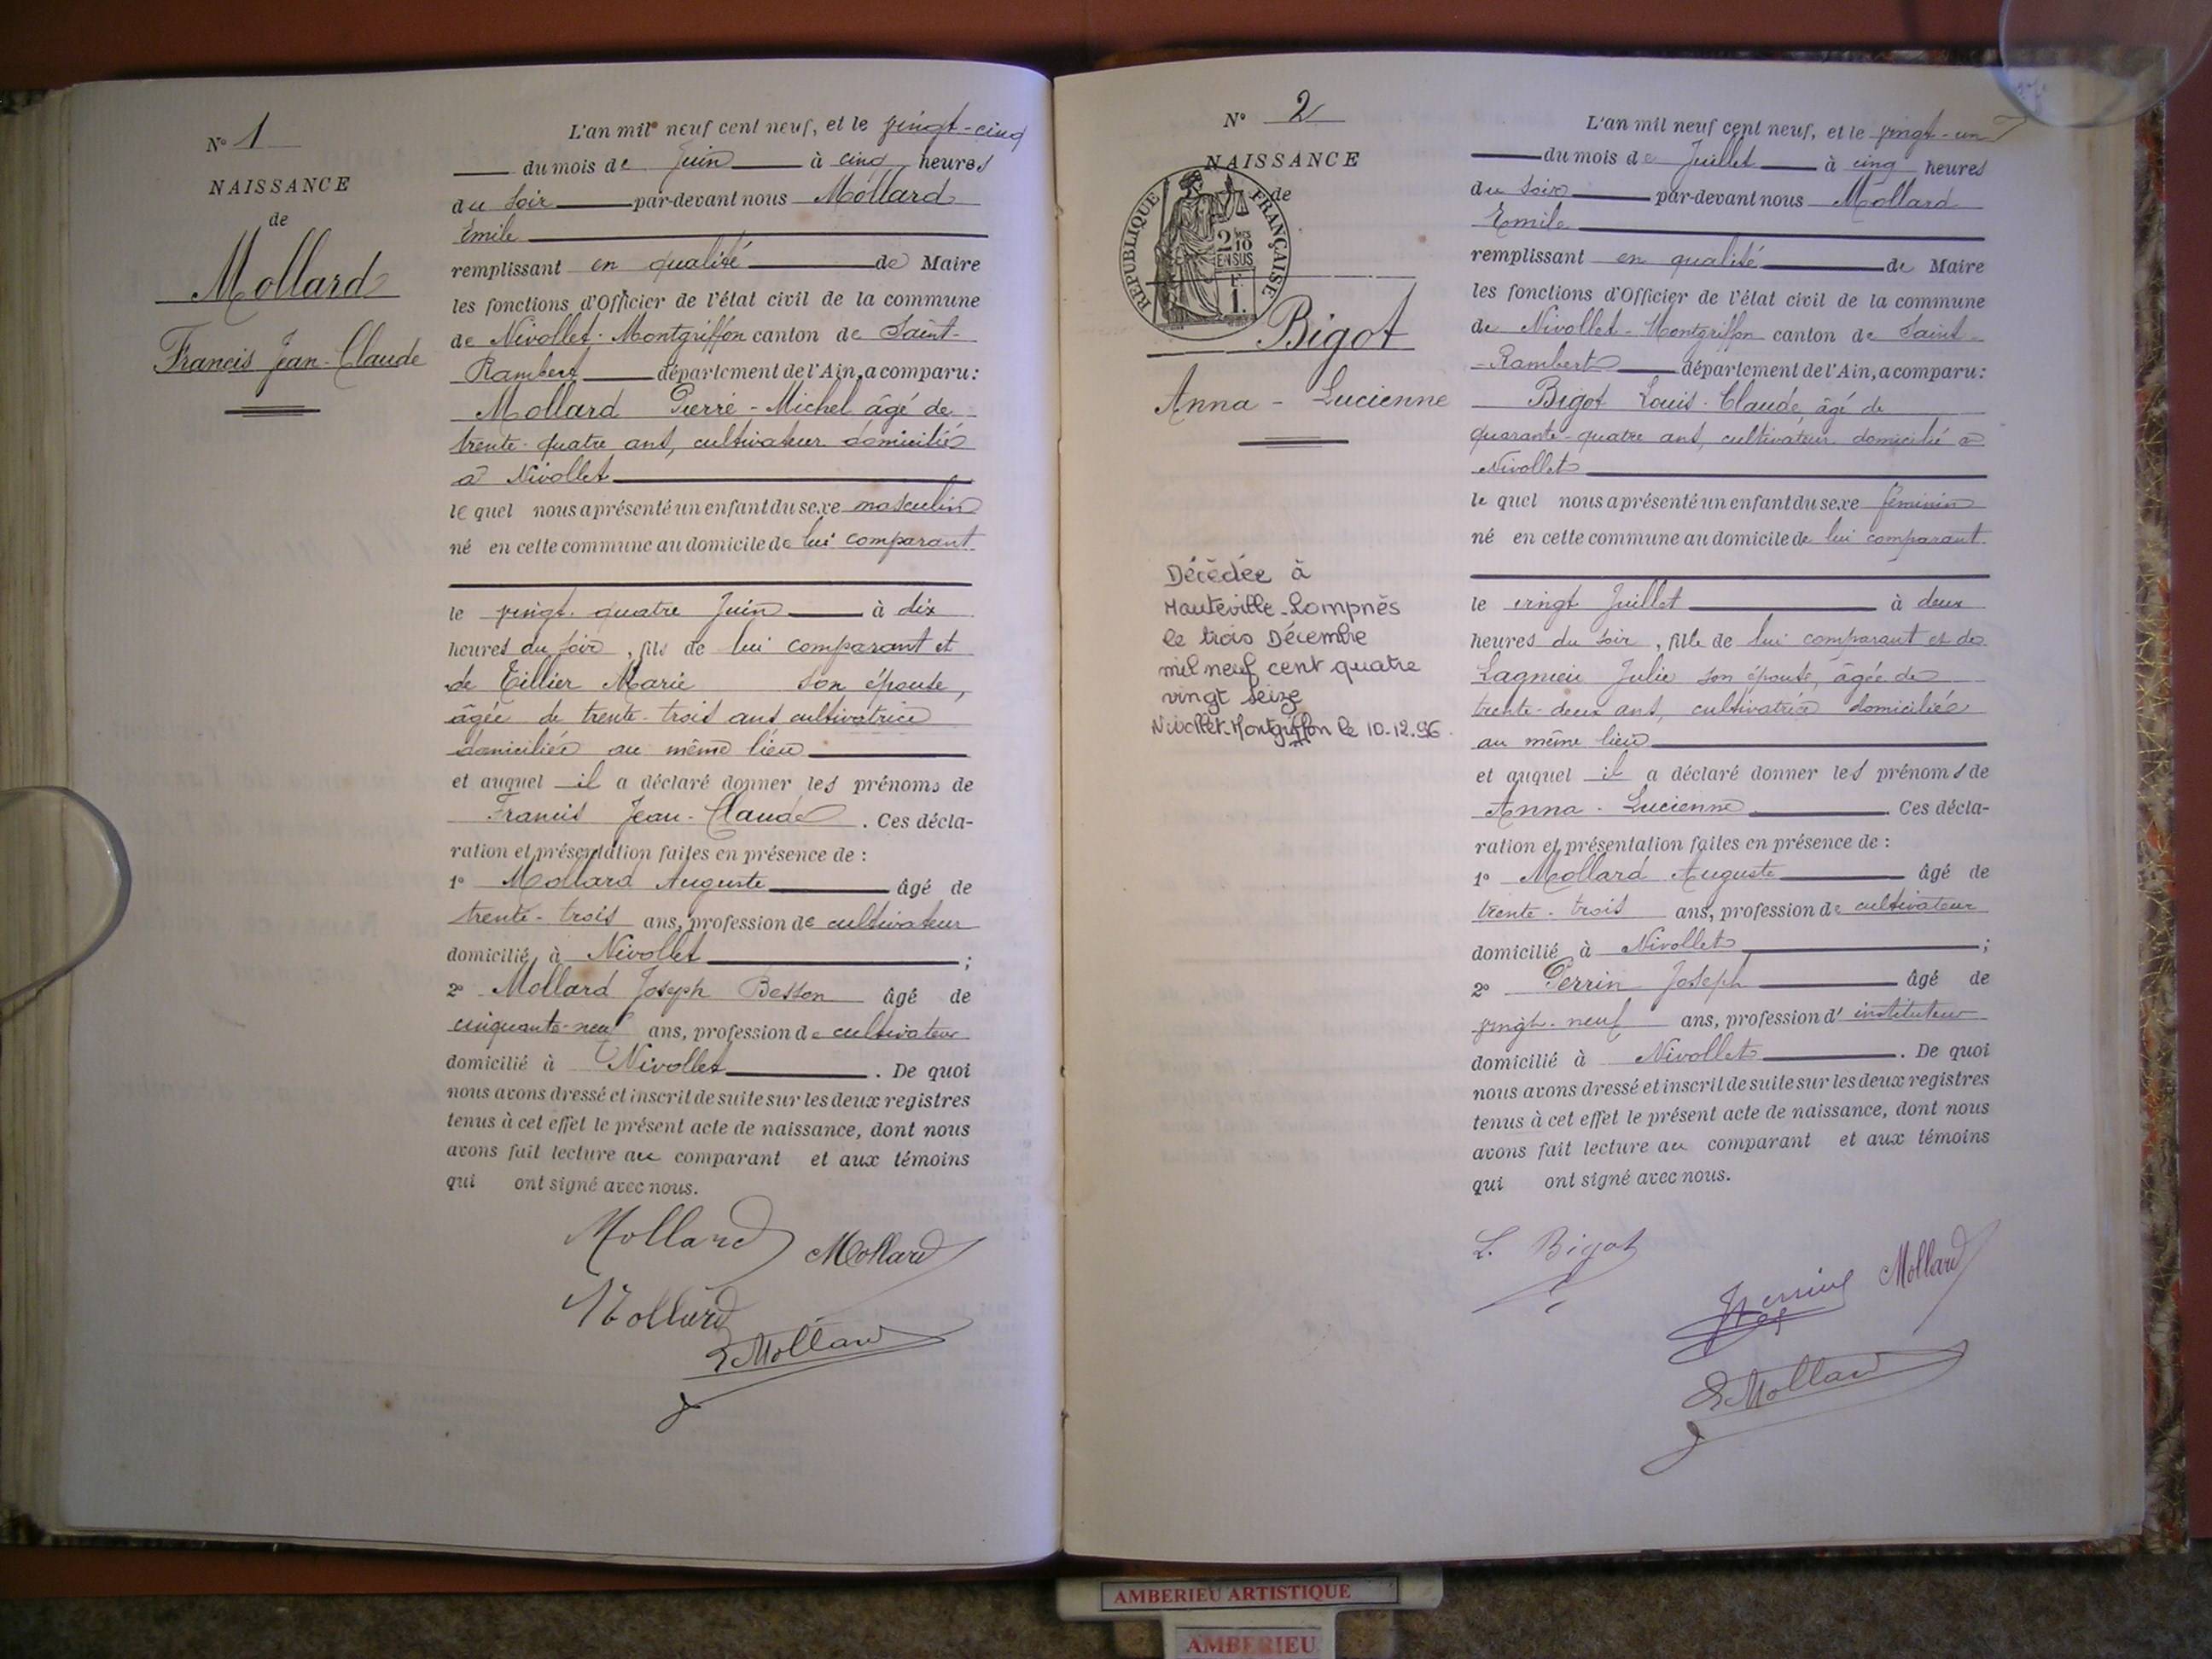 N° 1
NAISSANCE
de
Mollard
Francis Jean-Claude
L'an mil neuf cent neuf, et le vingt-cinq
du mois de Juin à cinq heures
du soir par-devant nous Mollard
Émile
remplissant en qualité de Maire
les fonctions d'Officier de l'état civil de la commune
de Nivollet-Montgriffon canton de Saint-
Rambert département de l'Ain, a comparu:
Mollard Pierre-Michel âgé de
trente-quatre ans, cultivateur domicilié
à Nivollet
le quel nous a présenté un enfant du sexe masculin
né en cette commune au domicile de lui comparant
le vingt-quatre Juin à dix
heures du soir, fils de lui comparant et
de Tillier Marie son épouse,
âgée de trente-trois ans cultivatrice
domiciliée au même lieu
et auquel il a déclaré donner les prénoms de
Francis Jean-Claude. Ces décla-
ration et présentation faites en présence de :
1° Mollard Auguste âgé de
trente-trois ans, profession de cultivateur
domicilié à Nivollet ;
2° Mollard Joseph Besson âgé de
cinquante-neuf ans, profession de cultivateur
domicilié à Nivollet. De quoi
nous avons dressé et inscrit de suite sur les deux registres
tenus à cet effet le présent acte de naissance, dont nous
avons fait lecture au comparant et aux témoins
qui ont signé avec nous.
Mollard Mollard
Mollard
E Mollard
N° 2
NAISSANCE
de
RÉPUBLIQUE FRANÇAISE
2/10 EN SUS
1 F.
Bigot
Anna - Lucienne
Décédée à
Hauteville-Lompnès
le trois Décembre
mil neuf cent quatre
vingt seize
Nivollet-Montgriffon le 10.12.96.
L'an mil neuf cent neuf, et le vingt-un
du mois de Juillet à cinq heures
du soir par-devant nous Mollard
Emile
remplissant en qualité de Maire
les fonctions d'Officier de l'état civil de la commune
de Nivollet-Montgriffon canton de Saint-
-Rambert département de l'Ain, a comparu:
Bigot Louis-Claude, âgé de
quarante-quatre ans, cultivateur domicilié à
Nivollet
le quel nous a présenté un enfant du sexe féminin
né en cette commune au domicile de lui comparant
le vingt Juillet à deux
heures du soir, fille de lui comparant et de
Lagnieu Julie son épouse, âgée de
trente-deux ans, cultivatrice domiciliée
au même lieu
et auquel il a déclaré donner les prénoms de
Anna-Lucienne. Ces décla-
ration et présentation faites en présence de :
1° Mollard Auguste âgé de
trente-trois ans, profession de cultivateur
domicilié à Nivollet ;
2° Perrin Joseph âgé de
vingt-neuf ans, profession d'instituteur
domicilié à Nivollet. De quoi
nous avons dressé et inscrit de suite sur les deux registres
tenus à cet effet le présent acte de naissance, dont nous
avons fait lecture au comparant et aux témoins
qui ont signé avec nous.
L. Bigot
Perrin Mollard
E Mollard
AMBERIEU ARTISTIQUE
AMBERIEU